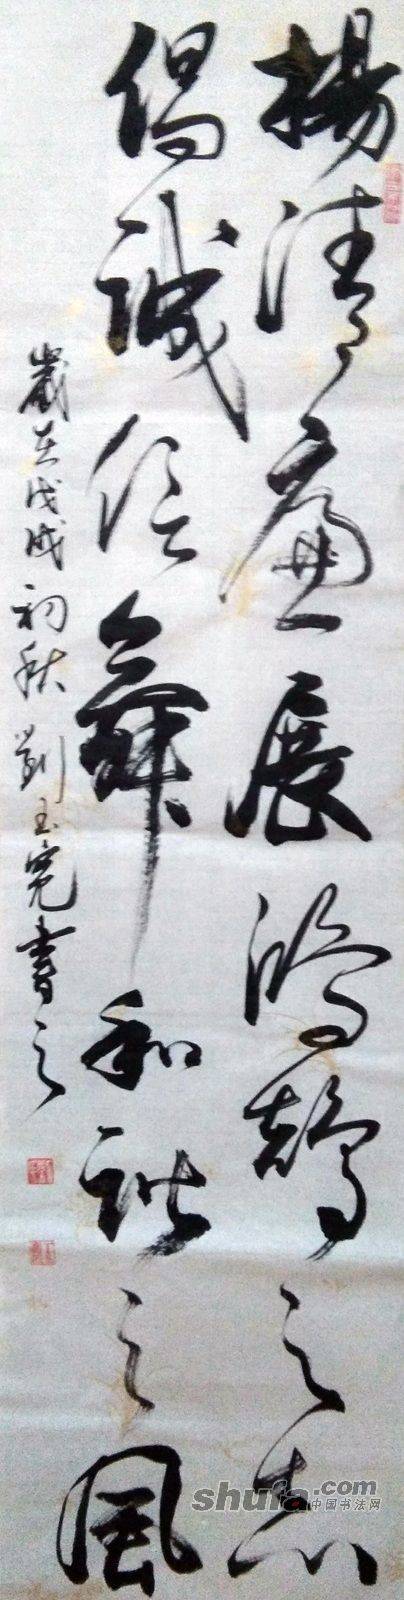 揚清廉展鴻鵠之志
倡誠信舞和諧之風
歲在戊戌初秋劉玉寬書之
shufa.com
中国书法网